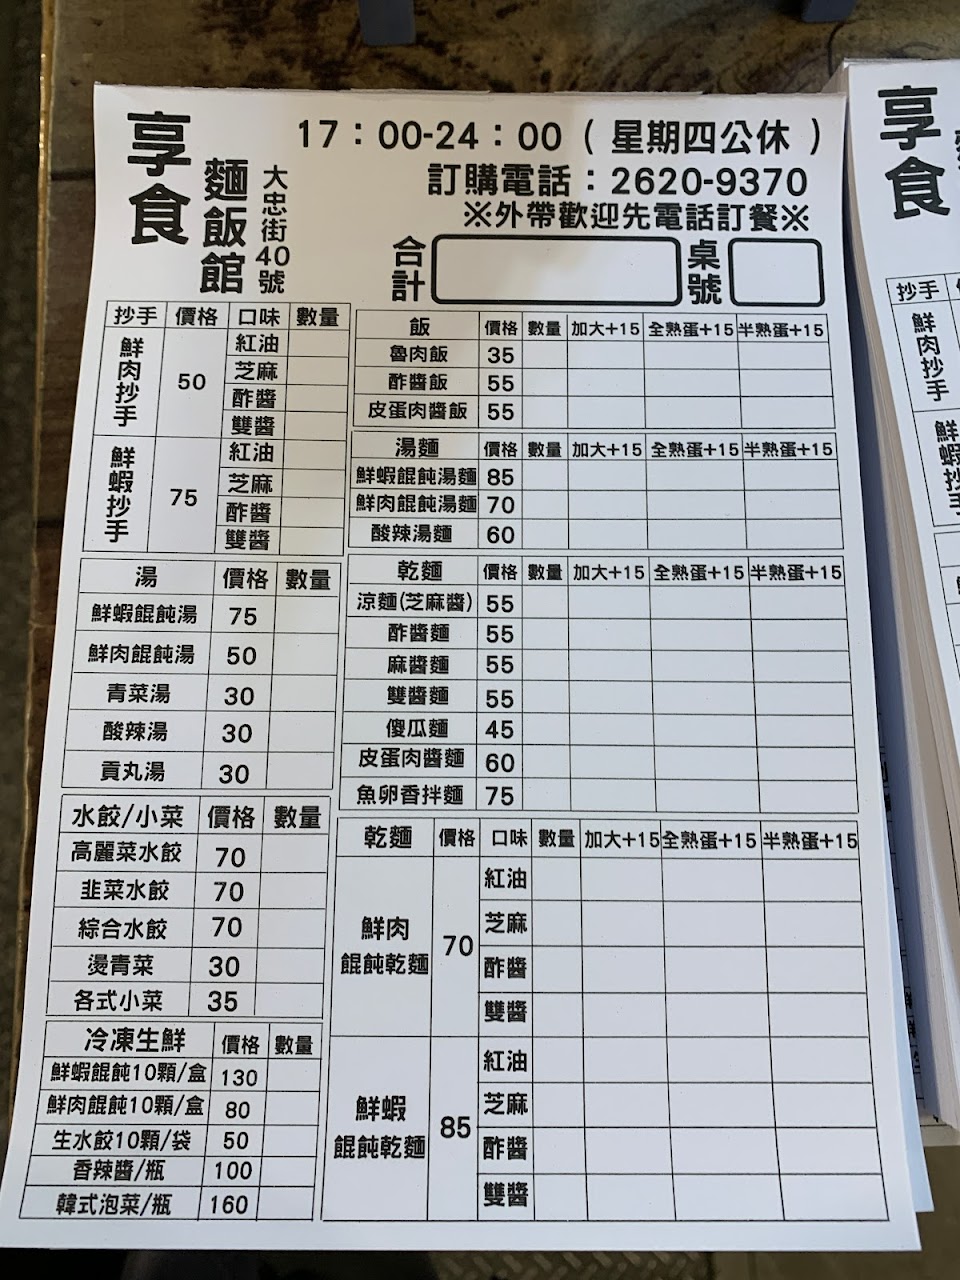 享食
麵飯館
大忠街40號
17：00-24：00（星期四公休）
訂購電話：2620-9370
※外帶歡迎先電話訂餐※
合計
桌號
抄手 價格 口味 數量
鮮肉抄手 50 紅油
芝麻
酢醬
雙醬
鮮蝦抄手 75 紅油
芝麻
酢醬
雙醬
湯 價格 數量
鮮蝦餛飩湯 75
鮮肉餛飩湯 50
青菜湯 30
酸辣湯 30
貢丸湯 30
水餃/小菜 價格 數量
高麗菜水餃 70
韭菜水餃 70
綜合水餃 70
燙青菜 30
各式小菜 35
冷凍生鮮 價格 數量
鮮蝦餛飩10顆/盒 130
鮮肉餛飩10顆/盒 80
生水餃10顆/袋 50
香辣醬/瓶 100
韓式泡菜/瓶 160
飯 價格 數量 加大+15 全熟蛋+15 半熟蛋+15
魯肉飯 35
酢醬飯 55
皮蛋肉醬飯 55
湯麵 價格 數量 加大+15 全熟蛋+15 半熟蛋+15
鮮蝦餛飩湯麵 85
鮮肉餛飩湯麵 70
酸辣湯麵 60
乾麵 價格 數量 加大+15 全熟蛋+15 半熟蛋+15
涼麵(芝麻醬) 55
酢醬麵 55
麻醬麵 55
雙醬麵 55
傻瓜麵 45
皮蛋肉醬麵 60
魚卵香拌麵 75
乾麵 價格 口味 數量 加大+15 全熟蛋+15 半熟蛋+15
鮮肉
餛飩乾麵 70 紅油
芝麻
酢醬
雙醬
鮮蝦
餛飩乾麵 85 紅油
芝麻
酢醬
雙醬
享食
抄手
鮮肉抄手
鮮蝦抄手